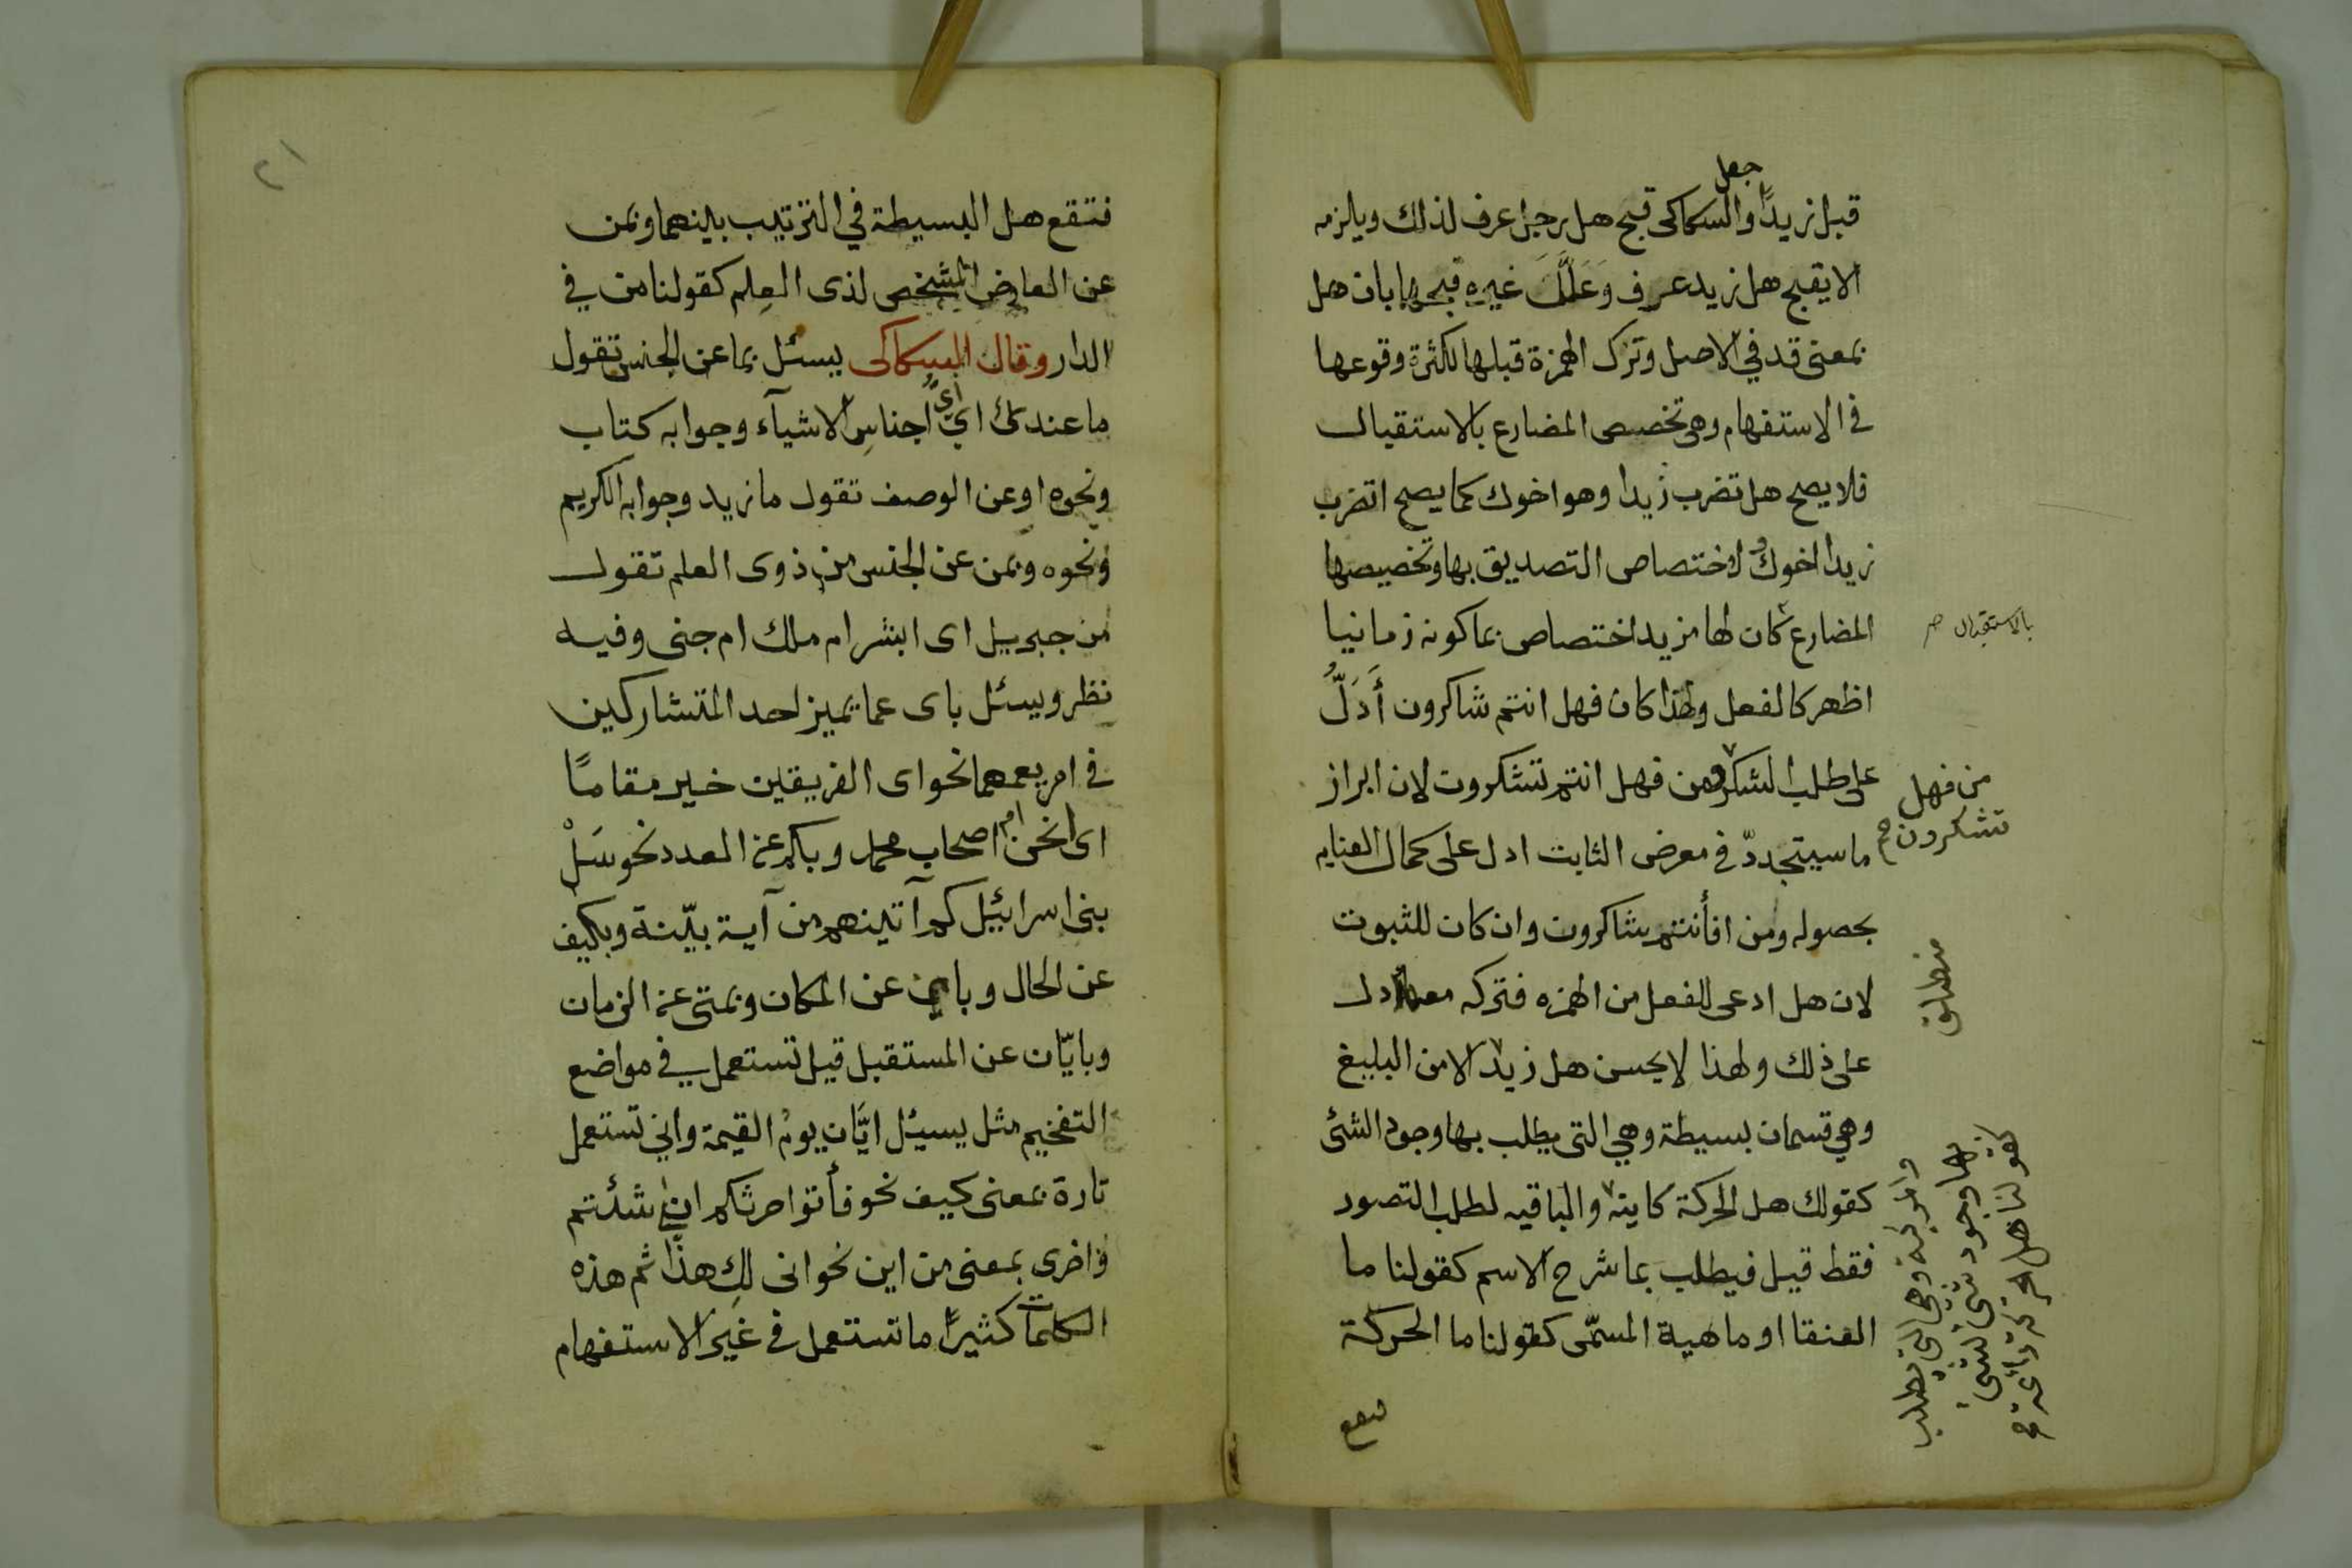 جعل
قبل زيدًا والسكاكى قبح هل رجل عرف لذلك ويلزمه
الا يقبح هل زيد عرف وَعَلَّلَ غيره قبحها بان هل
بمعنى قد فى الاصل وترك الهمزة قبلها لكثرة وقوعها
فى الاستفهام وهى تخصص المضارع بالاستقبال
فلا يصح هل تضرب زيدا وهو اخوك كما يصح اتضرب
زيدا اخوك لاختصاص التصديق بها وتخصيصها
المضارع كان لها مزيد اختصاص بما كونه زمانيا
بالاستقبال صح
اظهر كالفعل ولهذا كان فهل انتم شاكرون أَدَلُّ
على طلب الشكر من فهل انتم تشكرون لان ابراز
من فهل
تشكرون صح
ما سيتجددّ فى معرض الثابت ادل على كمال العنايه
بحصوله ومن افأنتم شاكرون وان كان للثبوت
لان هل ادعى للفعل من الهمزه فتركه معها ادل
على ذلك ولهذا لا يحسن هل زيد الا من البليغ
منطلق
وهي قسمان بسيطة وهي التى يطلب بها وجود الشئ
كقولك هل الحركة كاينه والباقيه لطلب التصور
فقط قيل فيطلب بما شرح الاسم كقولنا ما
العنقا او ماهية المسمّى كقولنا ما الحركة
ومركبة وهى التى تطلب
بها وجود شئ لشئ
كقولنا هل الحركة دائمة صح
فتقع
٢١
فتقع هل البسيطة في الترتيب بينهما وبمن
عن العارض المشخص لذى العلم كقولنا من في
الدار وقال السكاكى يسئل بما عن الجنس تقول
ما عندك اي أىُّ اجناسِ الاشيآء وجوابه كتاب
ونحوه او عن الوصف تقول ما زيد وجوابه الكريم
ونحوه وبمن عن الجنس من ذوى العلم تقول
من جبريل اى ابشر ام ملك ام جنى وفيه
نظر ويسئل باى عما يميز احد المتشاركين
فى امر يعمهما نحو اى الفريقين خير مقامًا
اى انحن ام اصحاب محمد وبكم عن العدد نحو سَلْ
بنى اسرائيل كم آتينهم من آية بيّنة وبكيف
عن الحال وباين عن المكان وبمتى عن الزمان
وبايّان عن المستقبل قيل تستعمل فى مواضع
التفخيم مثل يسئل ايَّان يومُ القيمة وانى تستعمل
تارة بمعنى كيف نحو فأتوا حرثكم انى شئتم
واخرى بمعنى من اين نحو انى لكِ هذا ثم هذه
الكلمات كثيرًا ما تستعمل فى غير الاستفهام